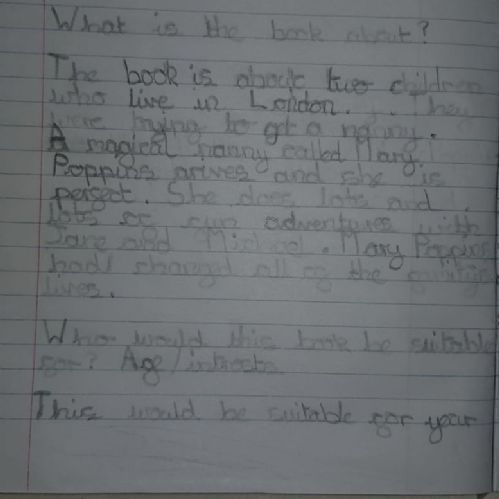 What is the book about?
The book is about two children
who live in London. They
were trying to get a nanny.
A magical nanny called Mary
Poppins arives and she is
persect. She does lots and
lots os sun adventures with
Jane and Michael. Mary Poppins
had changed all og the
lives.
Who would this book be suitable
sor? Age/intrests
This would be suitable sor year